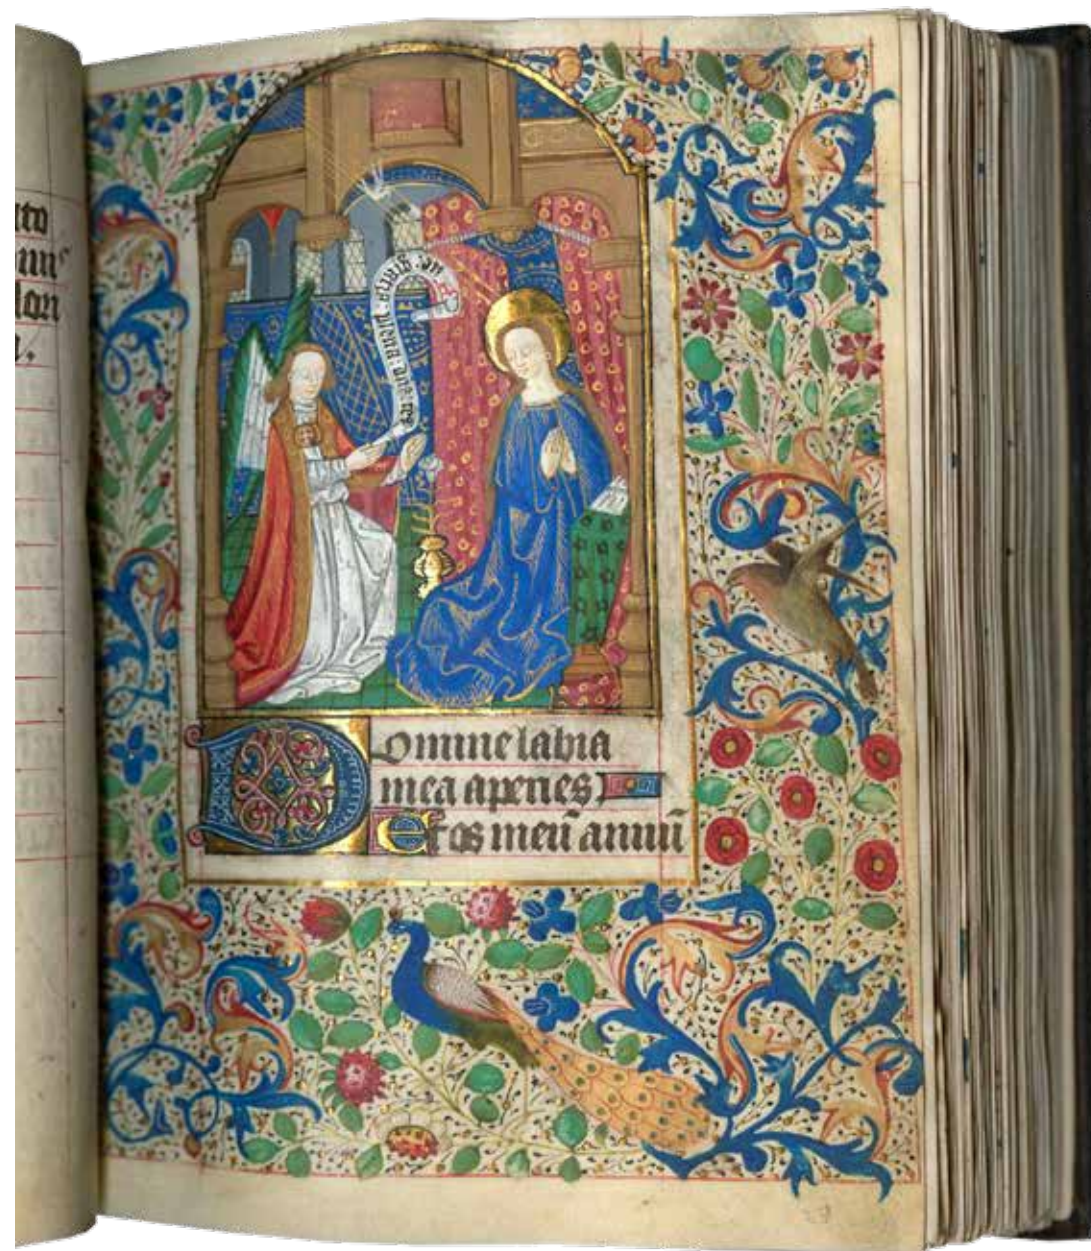 aue: gratia: plena:
Domine labia
mea aperies
Et os meū annū